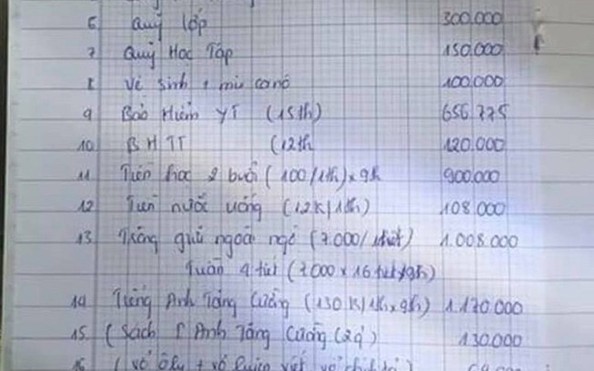 6 Quỹ lớp 300.000
7 Quỹ Học Tập 150.000
8 Vệ sinh + 100.000
9 Bảo Hiểm YT (15th) 656.775
10 BHTT (12th 120.000
11 Tiền học 2 buổi (100/1th) x 9th 900.000
12 Tiền nước uống (12K/1th) 108.000
13 Tiếng ngoài ngỏ (7.000/ 1tiết) 1.008.000
Tuần 4 tiết (7000 x 16 tiết/9th)
14 Tiếng Anh Tăng Cường (130K/1th x 9th) 1.170.000
15 (Sách T Anh Tăng Cường (2q) 130.000
16 (vở ôly + vở luyện viết